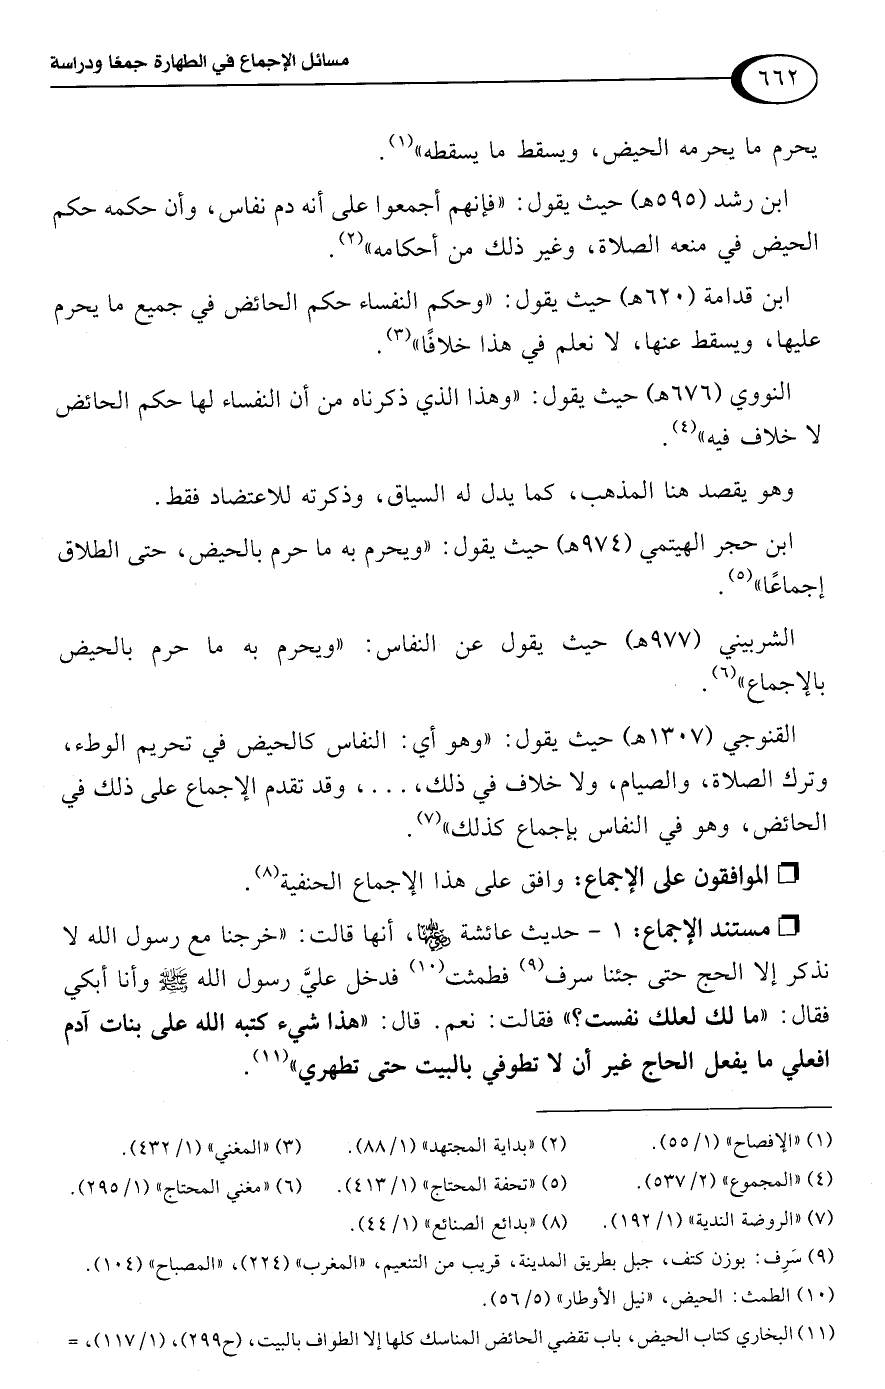 مسائل الإجماع في الطهارة جمعًا ودراسة
٦٦٢
يحرم ما يحرمه الحيض، ويسقط ما يسقطه»(١).
ابن رشد (٥٩٥هـ) حيث يقول: «فإنهم أجمعوا على أنه دم نفاس، وأن حكمه حكم
الحيض في منعه الصلاة، وغير ذلك من أحكامه»(٢).
ابن قدامة (٦٢٠هـ) حيث يقول: «وحكم النفساء حكم الحائض في جميع ما يحرم
عليها، ويسقط عنها، لا نعلم في هذا خلافًا»(٣).
النووي (٦٧٦هـ) حيث يقول: «وهذا الذي ذكرناه من أن النفساء لها حكم الحائض
لا خلاف فيه»(٤).
وهو يقصد هنا المذهب، كما يدل له السياق، وذكرته للاعتضاد فقط.
ابن حجر الهيتمي (٩٧٤هـ) حيث يقول: «ويحرم به ما حرم بالحيض، حتى الطلاق
إجماعًا»(٥).
الشربيني (٩٧٧هـ) حيث يقول عن النفاس: «ويحرم به ما حرم بالحيض
بالإجماع»(٦).
القنوجي (١٣٠٧هـ) حيث يقول: «وهو أي: النفاس كالحيض في تحريم الوطء،
وترك الصلاة، والصيام، ولا خلاف في ذلك، ...، وقد تقدم الإجماع على ذلك في
الحائض، وهو في النفاس بإجماع كذلك»(٧).
❐ الموافقون على الإجماع: وافق على هذا الإجماع الحنفية(٨).
❐ مستند الإجماع: ١ - حديث عائشة رضي الله عنها، أنها قالت: «خرجنا مع رسول الله لا
نذكر إلا الحج حتى جئنا سرف(٩) فطمثت(١٠) فدخل عليَّ رسول الله ﷺ وأنا أبكي
فقال: «ما لك لعلك نفست؟» فقالت: نعم. قال: «هذا شيء كتبه الله على بنات آدم
افعلي ما يفعل الحاج غير أن لا تطوفي بالبيت حتى تطهري»(١١).
(١) «الإفصاح» (١/ ٥٥). (٢) «بداية المجتهد» (١/ ٨٨). (٣) «المغني» (١/ ٤٣٢).
(٤) «المجموع» (٢/ ٥٣٧). (٥) «تحفة المحتاج» (١/ ٤١٣). (٦) «مغني المحتاج» (١/ ٢٩٥).
(٧) «الروضة الندية» (١/ ١٩٢). (٨) «بدائع الصنائع» (١/ ٤٤).
(٩) سَرِف: بوزن كتف، جبل بطريق المدينة، قريب من التنعيم، «المغرب» (٢٢٤)، «المصباح» (١٠٤).
(١٠) الطمث: الحيض، «نيل الأوطار» (٥/ ٥٦).
(١١) البخاري كتاب الحيض، باب تقضي الحائض المناسك كلها إلا الطواف بالبيت، (ح٢٩٩)، (١/ ١١٧)، =